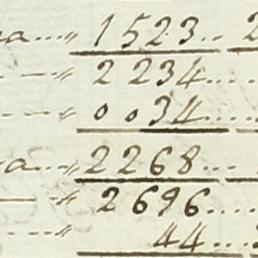 na...." 1523... 2
" 2234....
" 0034....
na...." 2268...
" 2696....
" 44...